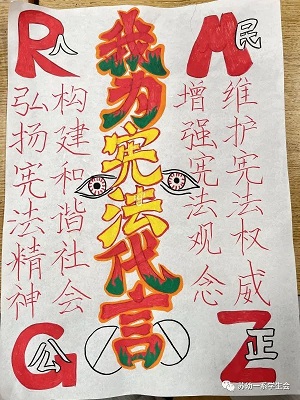 R人
M民
我为宪法代言
维护宪法权威
增强宪法观念
构建和谐社会
弘扬宪法精神
G公
Z正
苏幼一系学生会